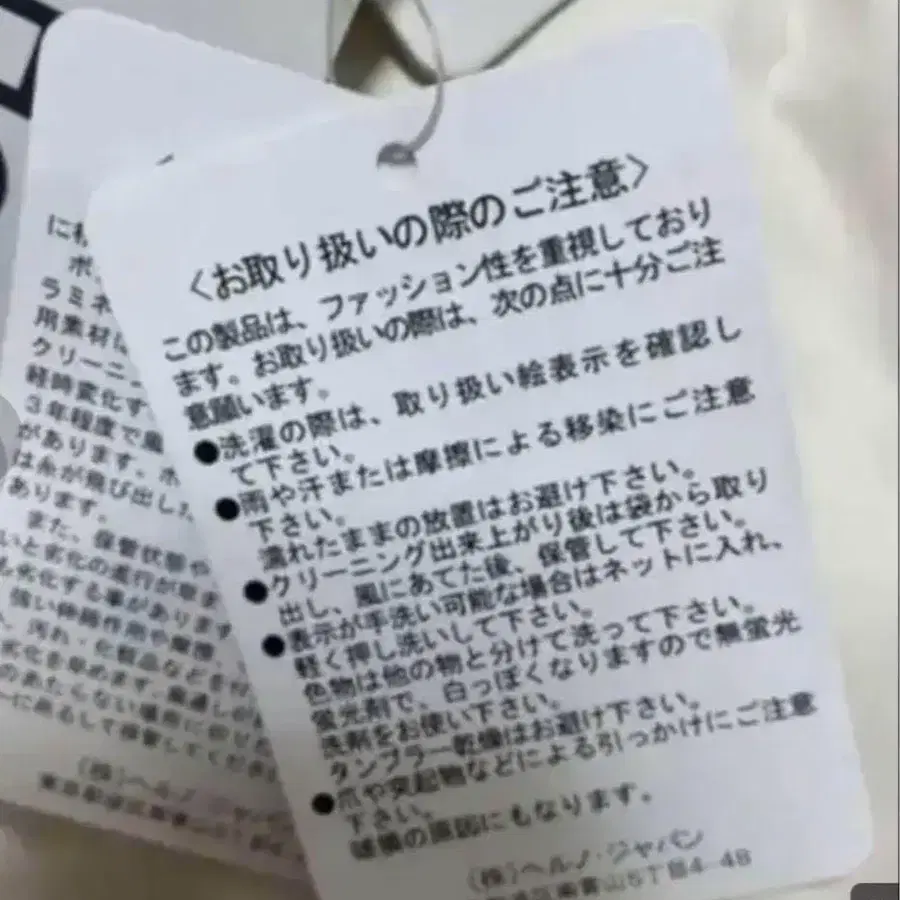 〈お取り扱いの際のご注意〉
この製品は、ファッション性を重視しており
ます。お取り扱いの際は、次の点に十分ご注
意願います。
●洗濯の際は、取り扱い絵表示を確認し
て下さい。
●雨や汗または摩擦による移染にご注意
下さい。
濡れたままの放置はお避け下さい。
●クリーニング出来上がり後は袋から取り
出し、風にあてた後、保管して下さい。
●表示が手洗い可能な場合はネットに入れ、
軽く押し洗いして下さい。
色物は他の物と分けて洗って下さい。
蛍光剤で、白っぽくなりますので無蛍光
洗剤をお使い下さい。
タンブラー乾燥はお避け下さい。
●爪や突起物などによる引っかけにご注意
下さい。
破損の原因にもなります。
(株)ヘルノ・ジャパン
南青山5丁目4-48
ラミネ
用素材
クリーニ
経時変化す
3年程度で
があります。ポ
は糸が飛び出し
あります。
また、保管状態や
いと劣化の進行が早ま
も劣化する事があります
強い伸縮作用や摩擦、
汚れ・化粧品などを
劣化を早めます。風通し
のあたらない場所に
して保管してくださ
(株)ヘルノ・ジャパン